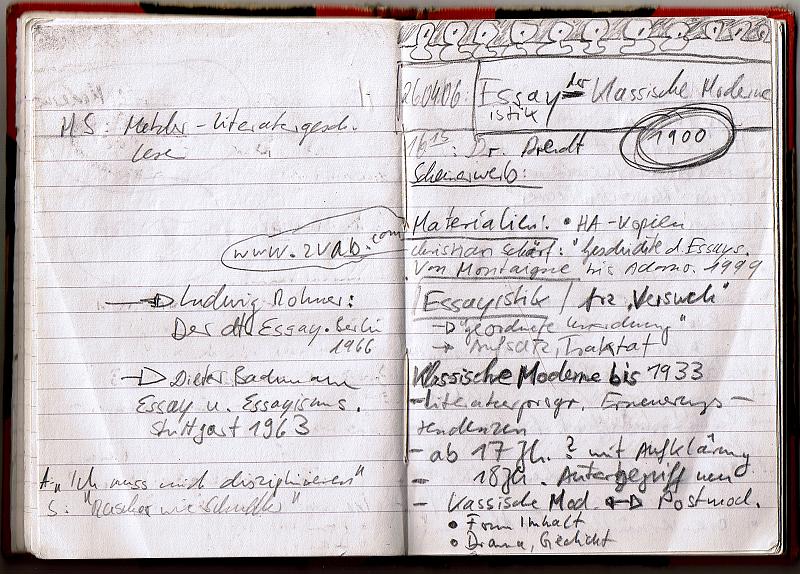 MS: Metzler-Literaturgesch.
lesen
www.zvab.com
Ludwig Rohner:
Der dt. Essay. Berlin
1966
Dieter Bachmann
Essay u. Essayismus.
Stuttgart 1963
A: "Ich muss mich disziplinieren"
S: "Rascher wie Schuller"
26.04.06: Essay der Klassische Moderne
istik
16 15: Dr. Arendt
1900
Scheinerwerb:
Materialien: • HA-Kopien
Christian Schärf: "Geschichte d. Essays.
Von Montaigne bis Adorno. 1999
Essayistik frz "Versuch"
"geordnete Unordnung"
→ Aufsatz, Traktat
Klassische Moderne bis 1933
- Literaturprogr. Erneuerungs-
tendenzen
- ab 17 Jh. ? mit Aufklärung
- 18 Jh. Autorbegriff neu
- Klassische Mod. ↔ Postmod.
• Form Inhalt
• Drama, Gedicht